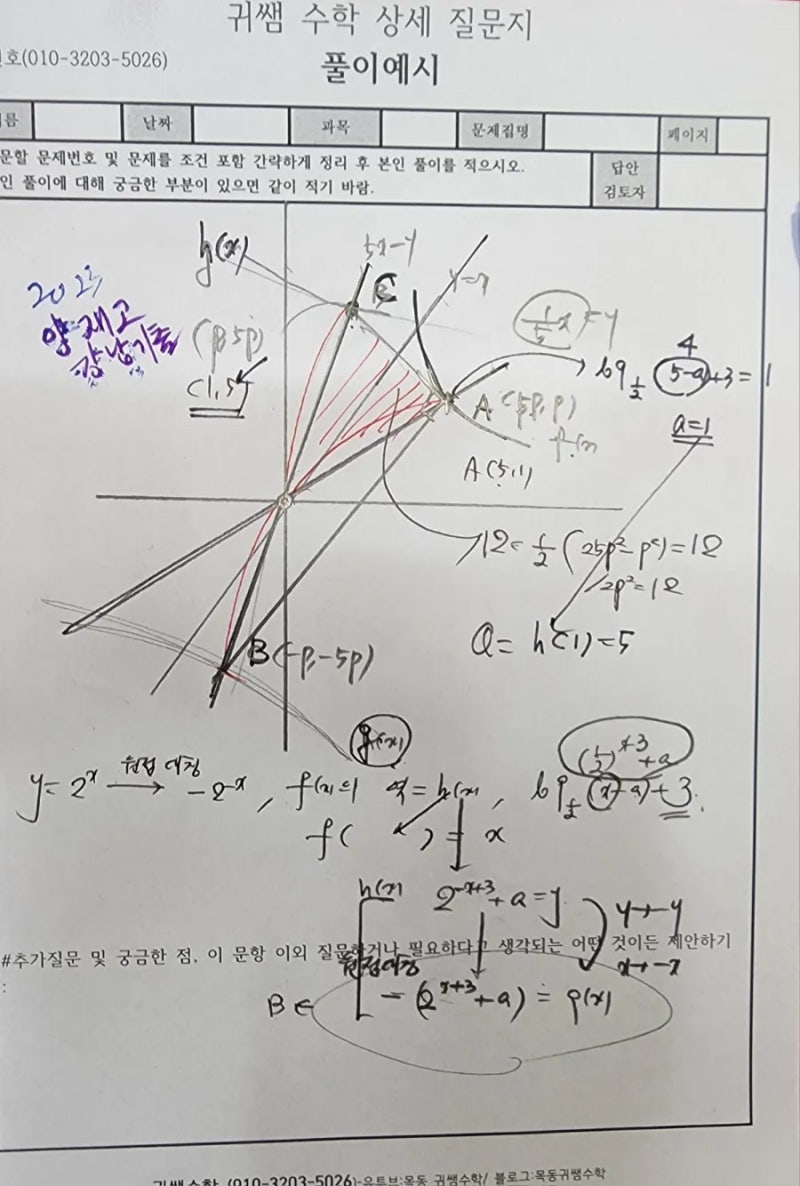 귀쌤 수학 상세 질문지
호(010-3203-5026)
풀이예시
름 날짜 과목 문제집명 페이지
문할 문제번호 및 문제를 조건 포함 간략하게 정리 후 본인 풀이를 적으시오.
인 풀이에 대해 궁금한 부분이 있으면 같이 적기 바람.
답안
검토자
h(x)
5x=y
y=x
C
2023
양재고
강남기출
(p, 5p)
(1, 5)
1/5 x = y
log_{1/2} (5-a)+3 = 1
4
a=1
A (5p, p)
f(x)
A (5, 1)
12 = 1/2 (25p²-p²) = 12
12p² = 12
Q = h(1) = 5
B (-p, -5p)
g(x)
y = 2^x 원점 대칭 → -2^{-x}, f(x)의 역 = h(x), log_{1/2} (x-a)+3.
(1/2)^{x-3}+a
f( ) = x
h(x) 2^{-x+3}+a = y
y→-y
#추가질문 및 궁금한 점. 이 문항 이외 질문하거나 필요하다고 생각되는 어떤 것이든 제안하기
:
원점대칭
x→-x
B ∈ -(2^{x+3}+a) = g(x)
귀쌤수학 (010-3203-5026)-유튜브:목동 귀쌤수학/ 블로그:목동귀쌤수학